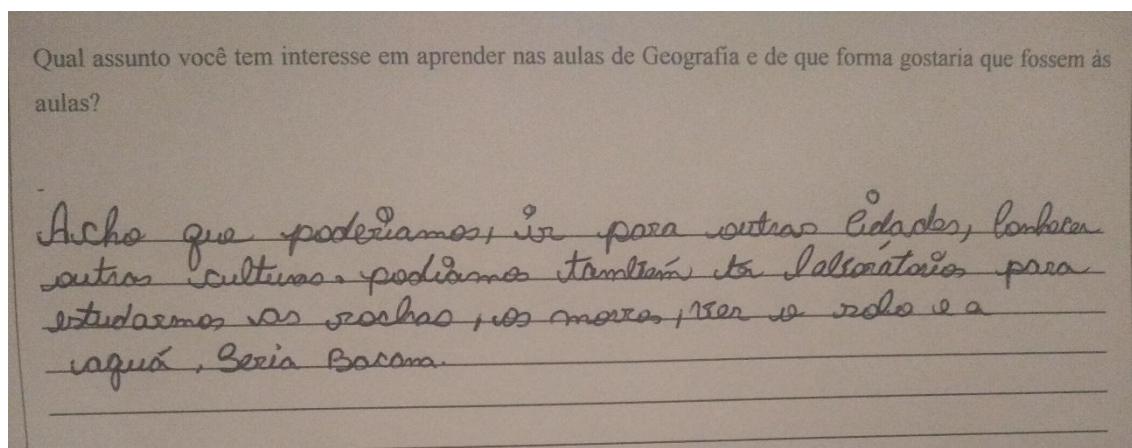 Qual assunto você tem interesse em aprender nas aulas de Geografia e de que forma gostaria que fossem às
aulas?
Acho que poderiamos, ir para outras Cidades, Conhecer
outras culturas. podiamos também ter Laboratórios para
estudarmos as rochas, os morros, ver o solo e a
aguá, Seria Bacana.